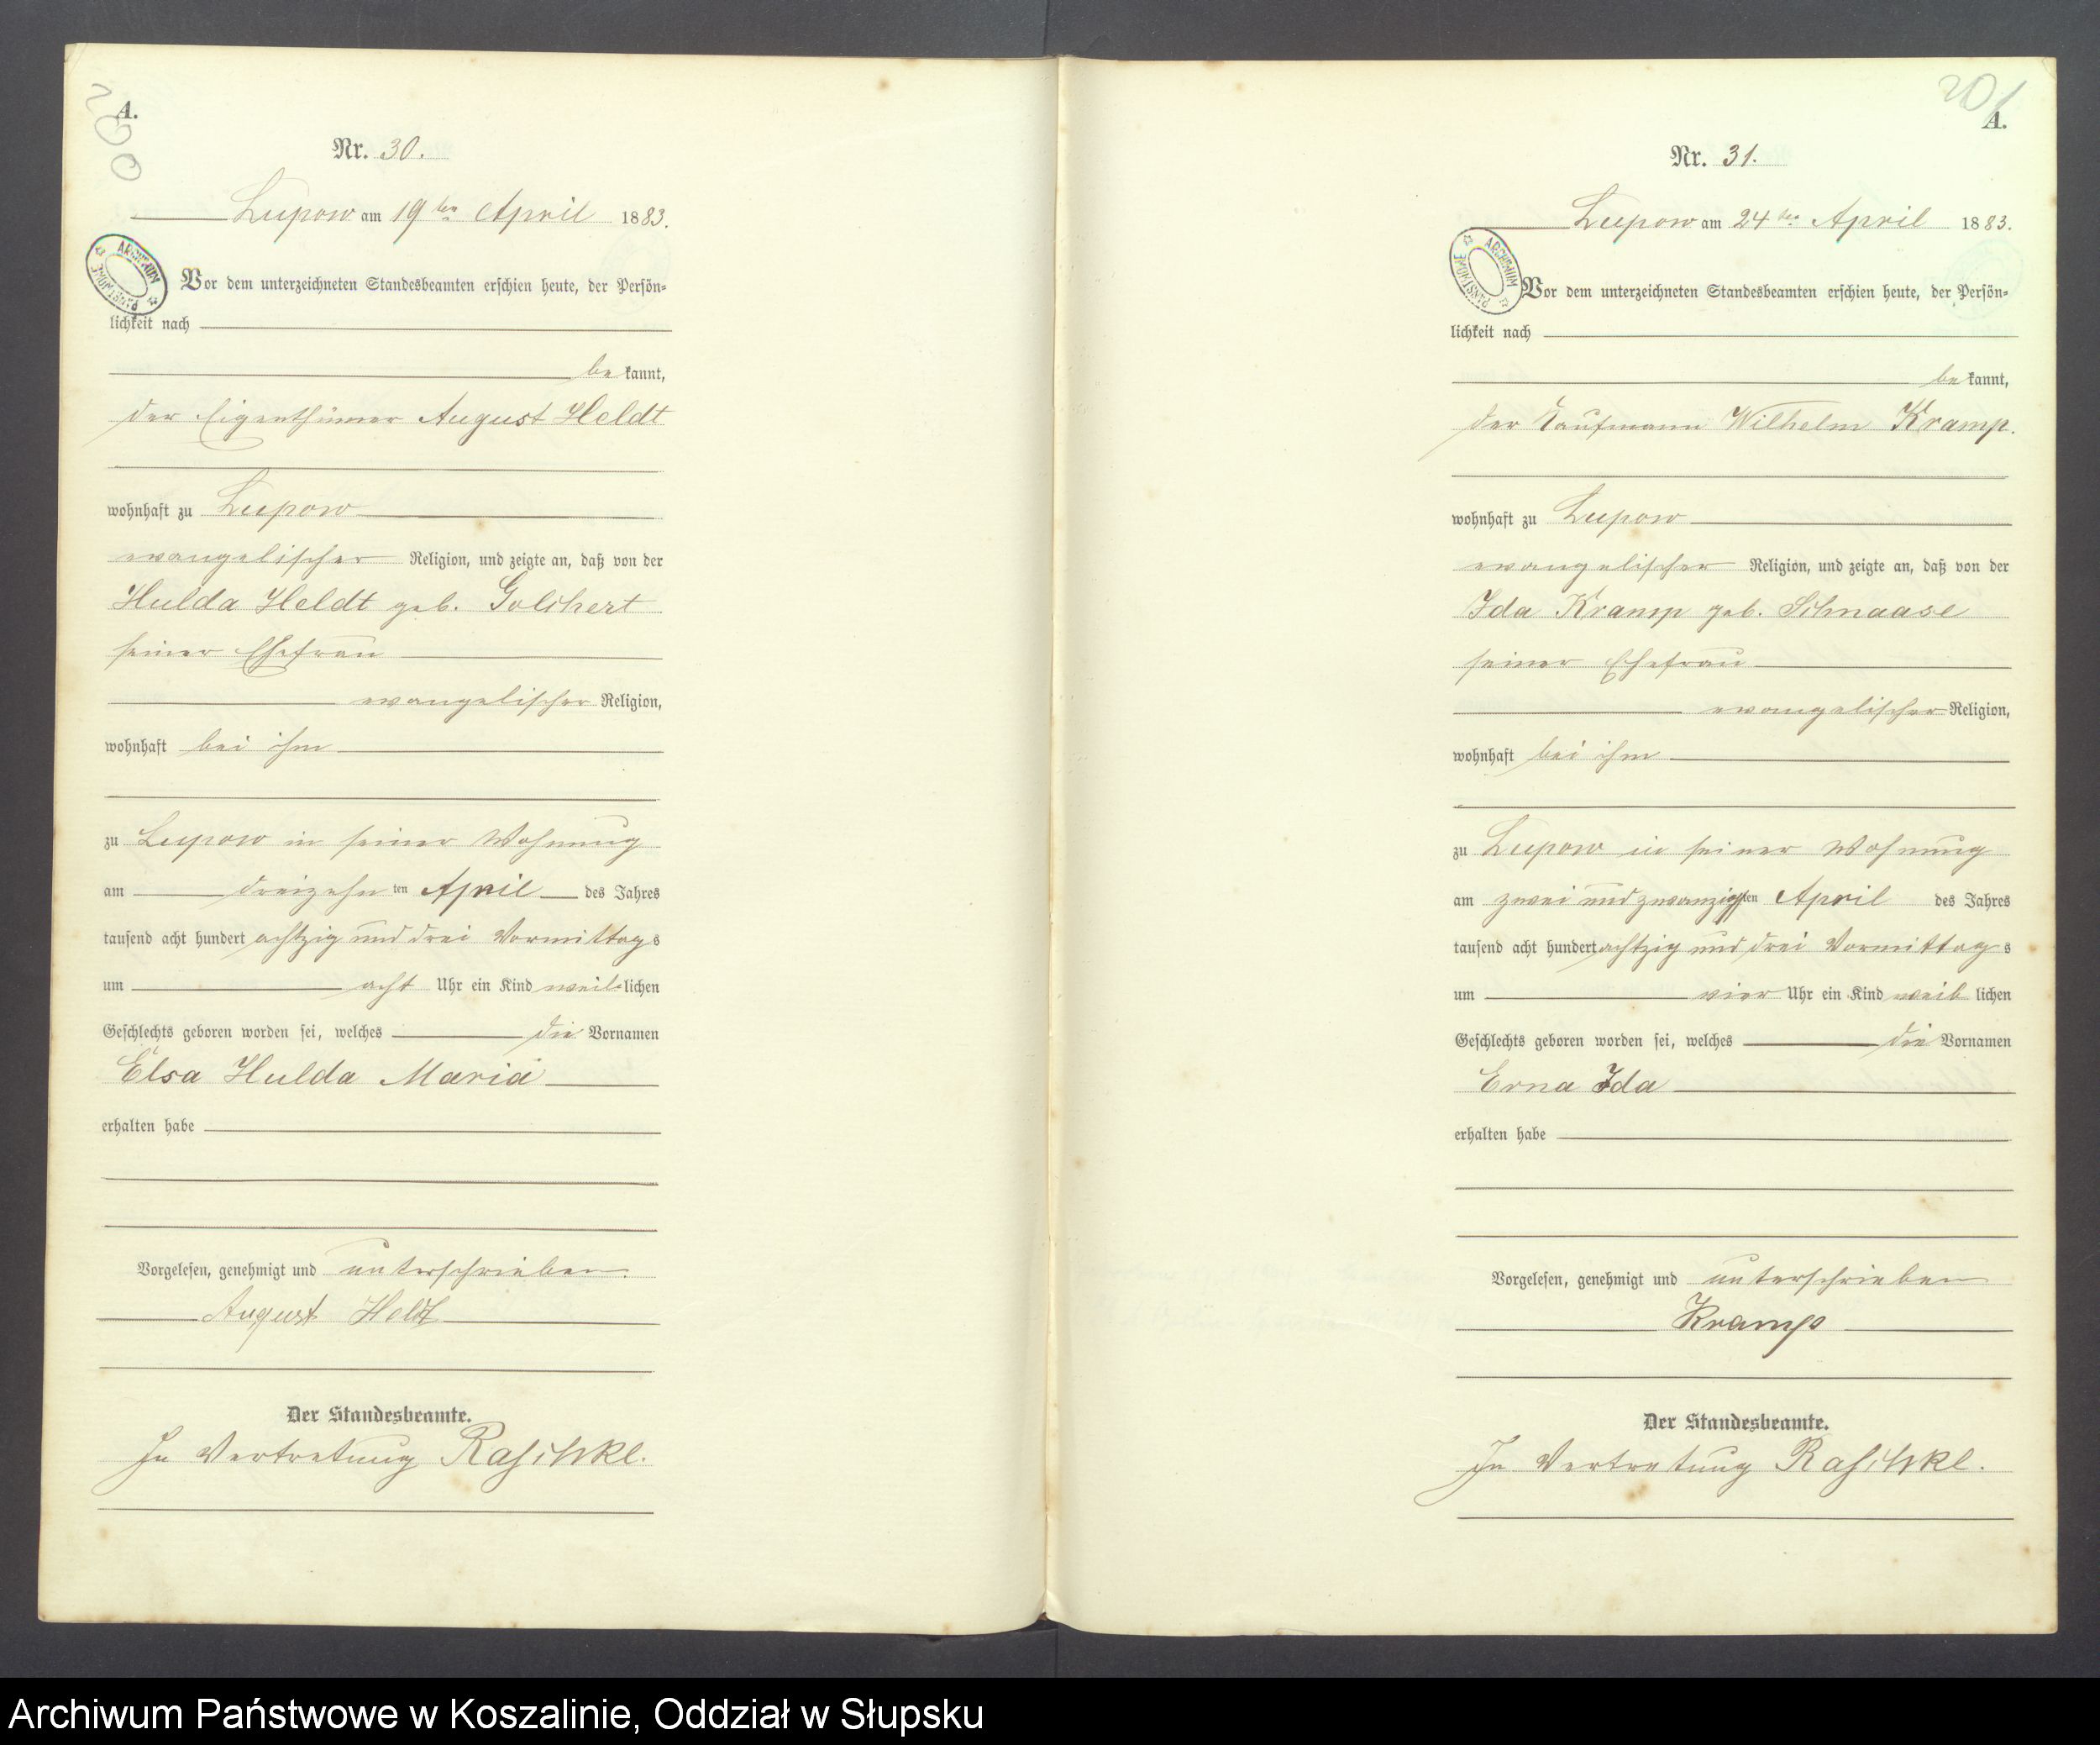 200
A.
Nr. 30.
Lupow am 19ten April 1883.
ARCHIWUM PAŃSTWOWE
Vor dem unterzeichneten Standesbeamten erschien heute, der Persön-
lichkeit nach
bekannt,
der Eigenthümer August Heldt
wohnhaft zu Lupow
evangelischer Religion, und zeigte an, daß von der
Hulda Heldt geb. Golchert
seiner Ehefrau
evangelischer Religion,
wohnhaft bei ihm
zu Lupow in seiner Wohnung
am dreizehnten April des Jahres
tausend acht hundert achtzig und drei Vormittags
um acht Uhr ein Kind weiblichen
Geschlechts geboren worden sei, welches die Vornamen
Elsa Hulda Maria
erhalten habe
Vorgelesen, genehmigt und unterschrieben.
August Heldt
Der Standesbeamte.
In Vertretung
201
A.
Nr. 31.
Lupow am 24ten April 1883.
ARCHIWUM PAŃSTWOWE
Vor dem unterzeichneten Standesbeamten erschien heute, der Persön-
lichkeit nach
bekannt,
der Kaufmann Wilhelm Kramp.
wohnhaft zu Lupow
evangelischer Religion, und zeigte an, daß von der
Ida Kramp geb. Schnaase
seiner Ehefrau
evangelischer Religion,
wohnhaft bei ihm
zu Lupow in seiner Wohnung
am zwei und zwanzigsten April des Jahres
tausend acht hundert achtzig und drei Vormittags
um vier Uhr ein Kind weiblichen
Geschlechts geboren worden sei, welches die Vornamen
Erna Ida
erhalten habe
Vorgelesen, genehmigt und unterschrieben
Kramp
Der Standesbeamte.
In Vertretung
Archiwum Państwowe w Koszalinie, Oddział w Słupsku